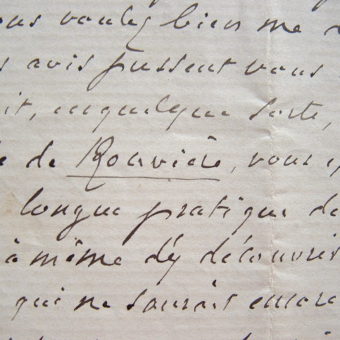 vous voulez bien me
avis pussent vous
it, en quelque sorte,
de Rouvière, vous
longue pratique de
à même d'y découvrir
qui ne saurait encore